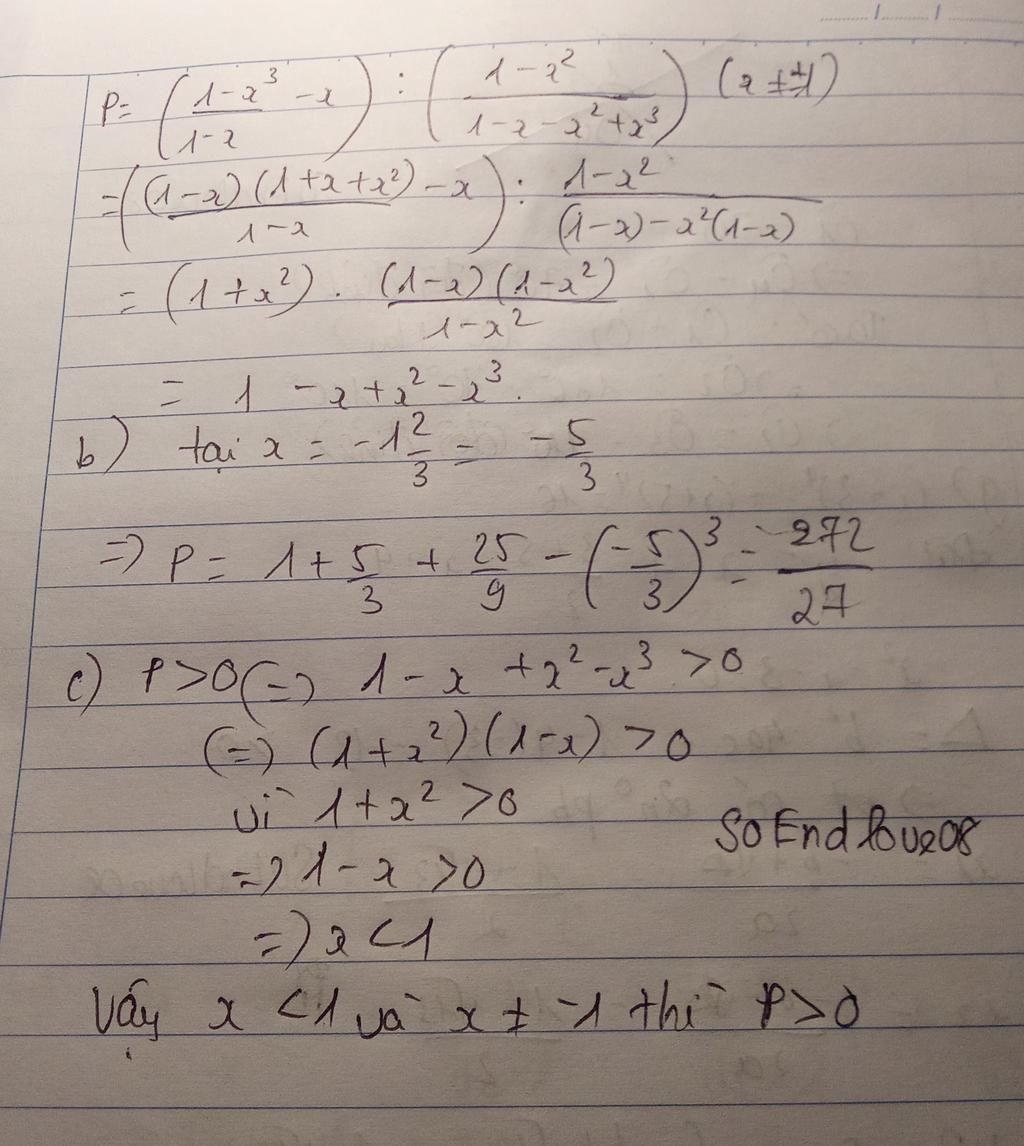 P = ((1-x³)/(1-x) - x) : ((1-x²)/(1-x-x²+x³)) (x ≠ ±1)
= ((1-x)(1+x+x²)/(1-x) - x) : (1-x²)/((1-x)-x²(1-x))
= (1+x²) . (1-x)(1-x²)/(1-x²)
= 1 - x + x² - x³.
b) tại x = -1 2/3 = -5/3
=> P = 1 + 5/3 + 25/9 - (-5/3)³ = 272/27
c) P>0 (=) 1 - x + x² - x³ > 0
(=) (1+x²)(1-x) > 0
vì 1+x² > 0
=> 1-x > 0
=> x < 1
SoEndlove08
Vậy x < 1 và x ≠ -1 thì P > 0